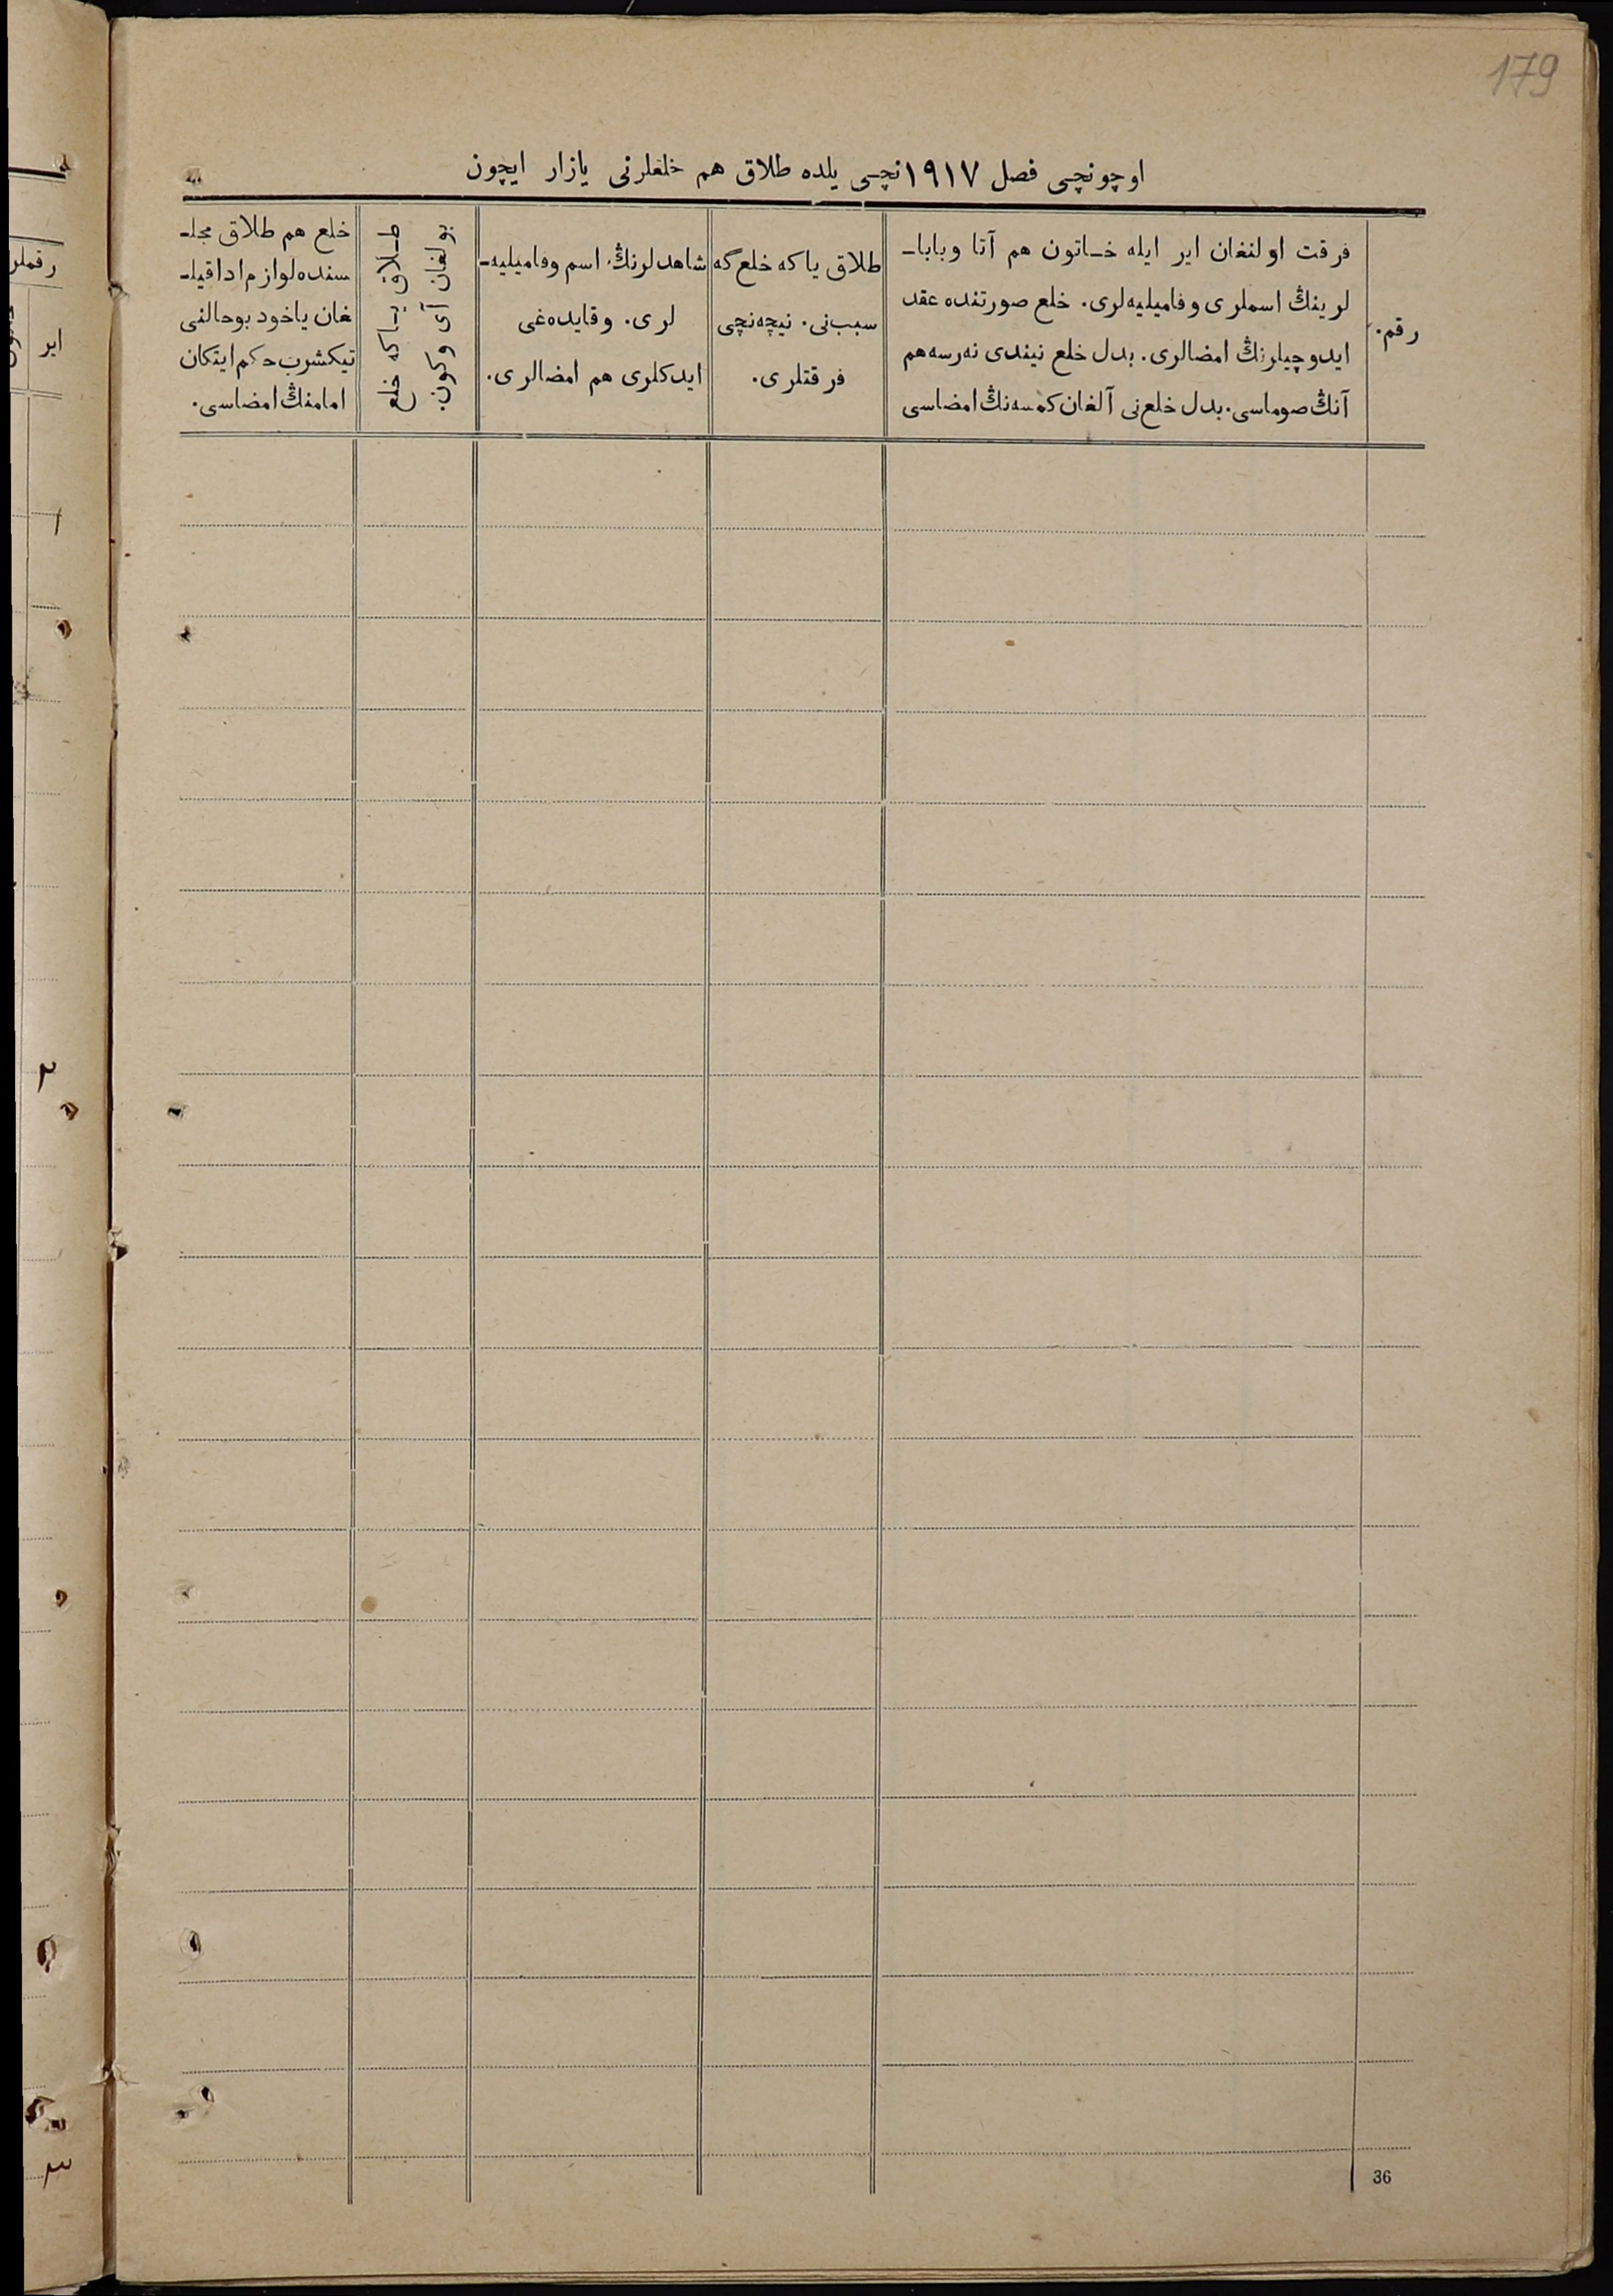 179
اوچونچی فصل ۱۹۱۷نچی یلده طلاق هم خلعلرنی یازار ایچون
رقم.
فرقت اولنغان ایر ایله خاتون هم آتا وبابا-
لرینڭ اسملری وفامیلیه‌لری. خلع صورتنده عقد
ایدوچیلرنڭ امضالری. بدل خلع نیندی نه‌رسه هم
آنڭ صوماسی. بدل خلع‌نی آلغان کمسه‌نڭ امضاسی
طلاق یاکه خلع‌گه
سبب‌نی. نیچه‌نچی
فرقتلری.
شاهدلرنڭ. اسم وفامیلیه-
لری. وقایده‌غی
ایدکلری هم امضالری.
طلاق یاکه خلع
بولغان آی وکون.
خلع هم طلاق مجلـ
سنده لوازم ادا قیلـ
غان یاخود بوحالنی
تیکشرب حکم ایتکان
امامنڭ امضاسی.
رقملر
ایر
۱
۲
۳
36